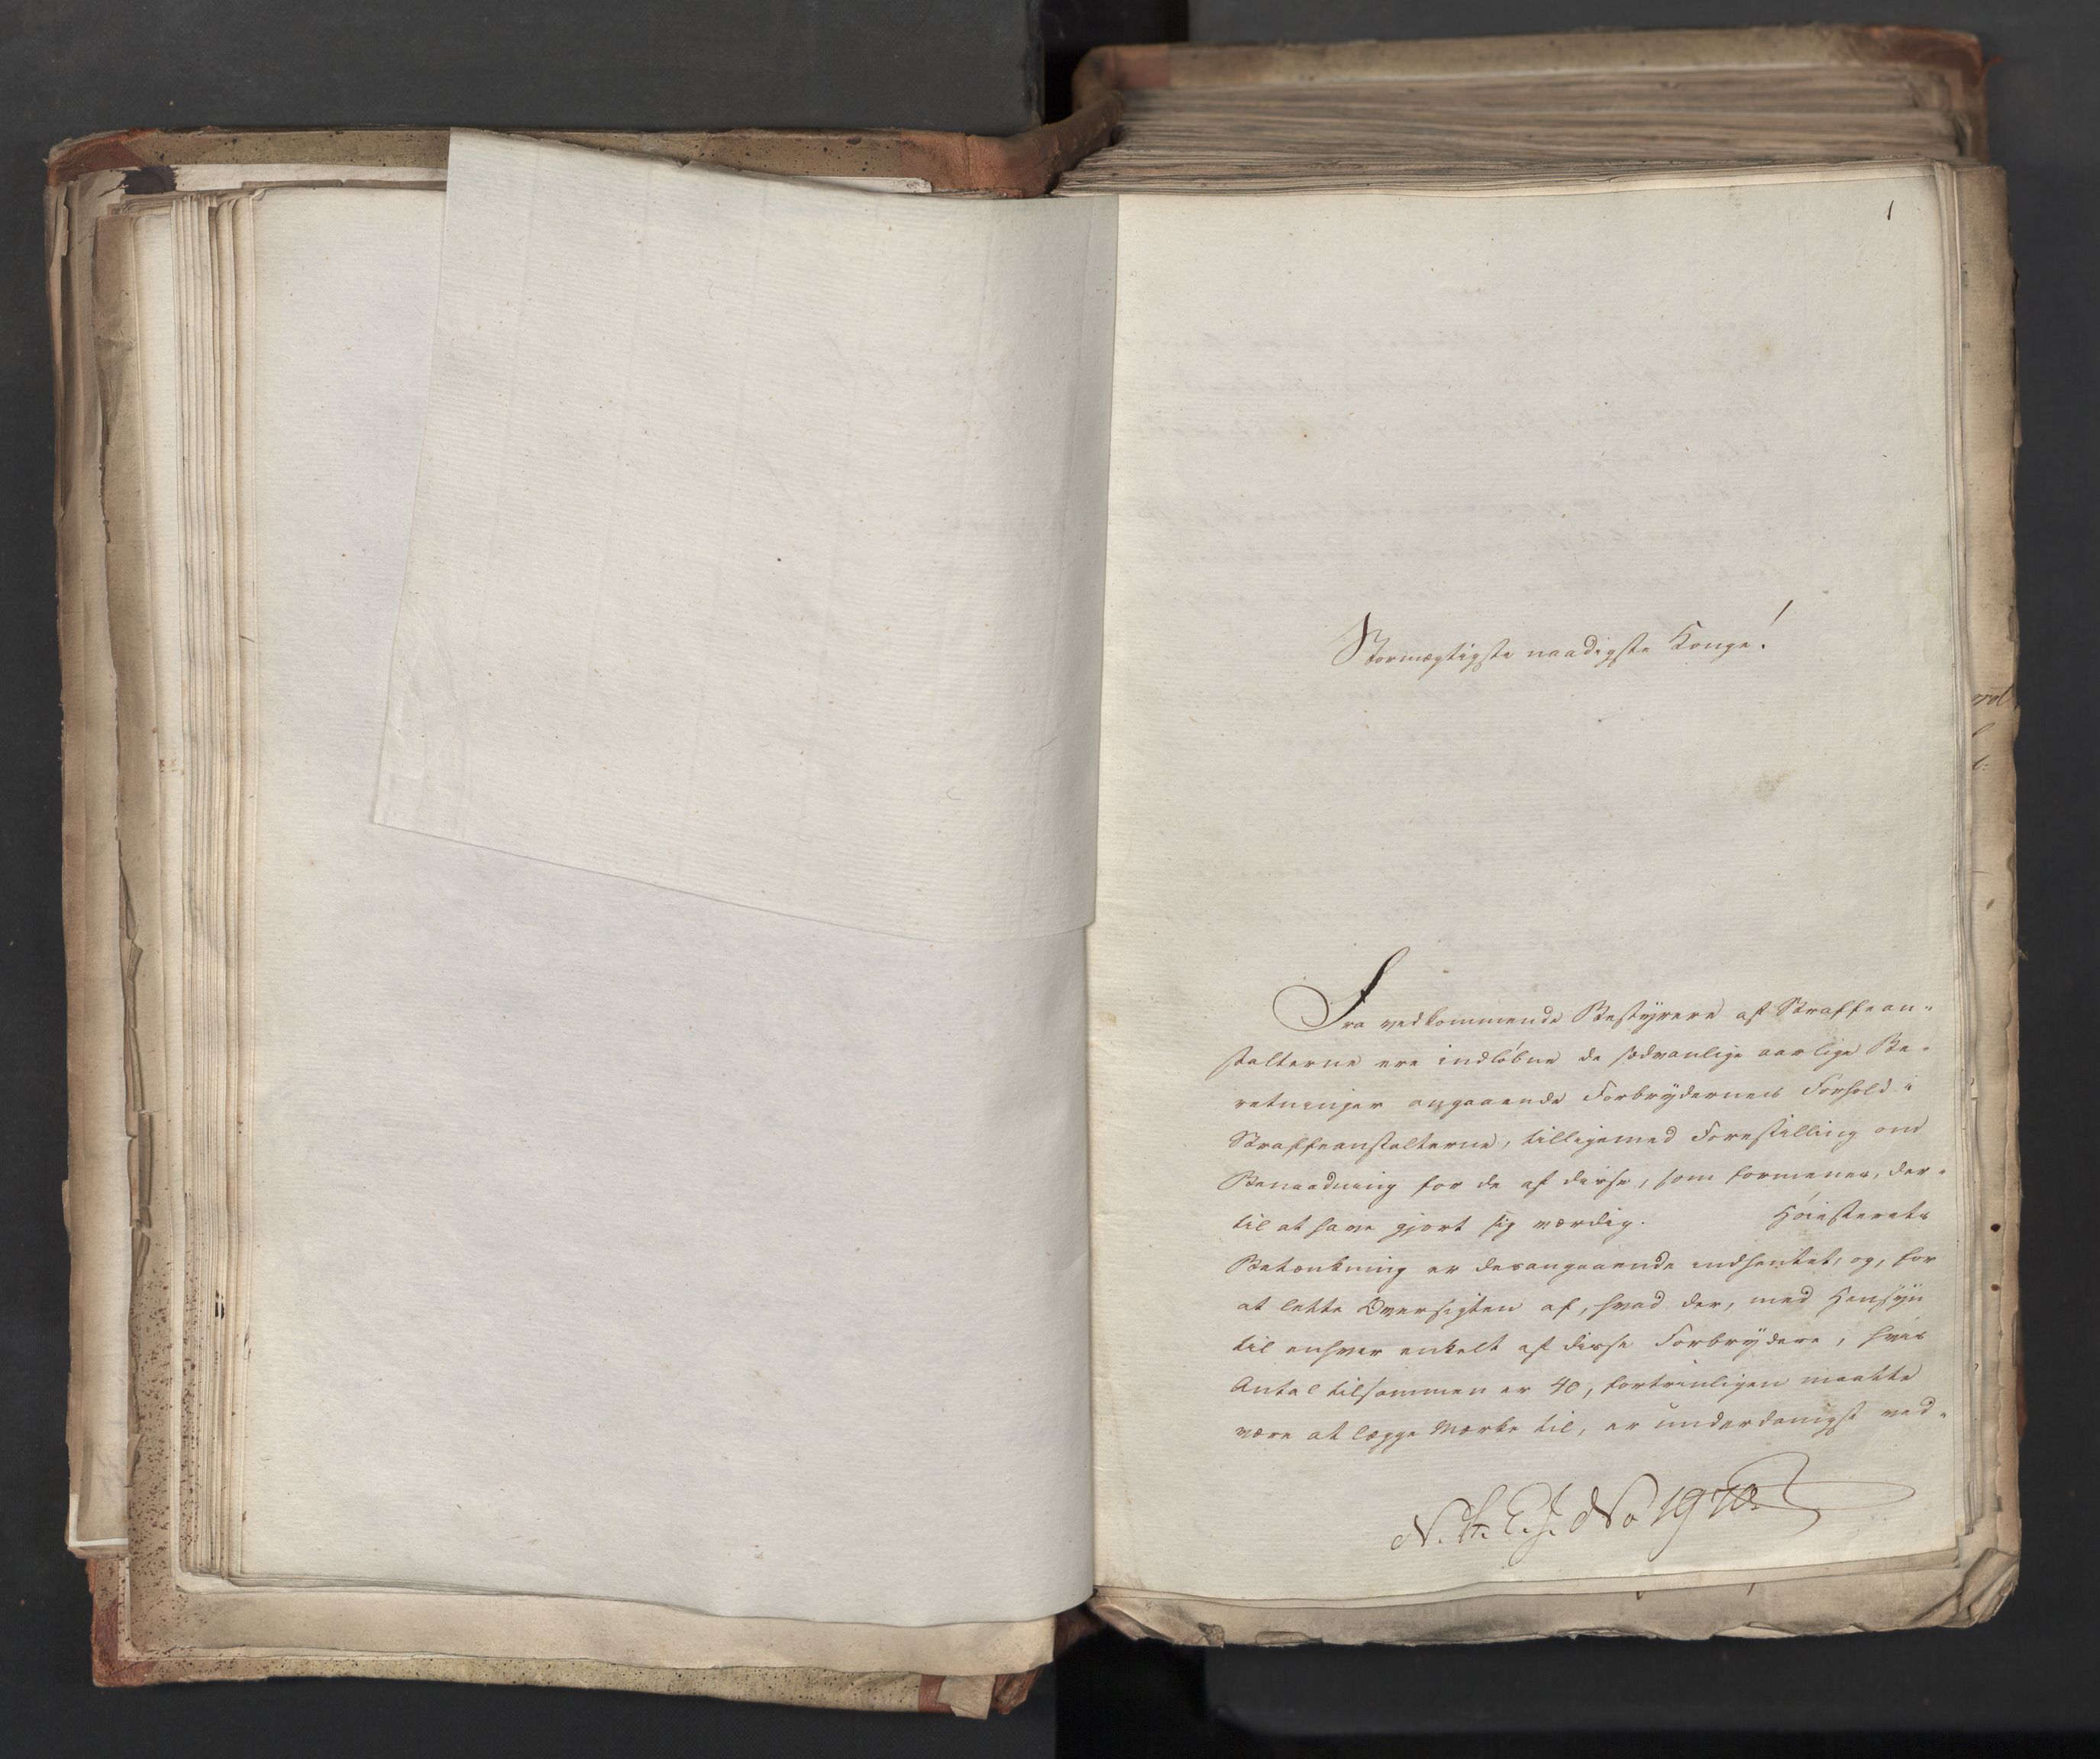 1
Stormægtigste naadigste Konge!
Fra vedkommende Bestÿrere af Straffean-
stalterne ere indløbne de sædvanlige aarlige Be-
retninger angaaende Forbrÿdernes Forhold i
Straffeanstalterne, tilligemed Forestilling om
Benaadning for de af disse, som formenes, der-
til at have gjort sig værdig. Høiesterets
Betænkning er desangaaende indhentet, og, for
at lette Oversigten af, hvad der, med Hensÿn
til enhver enkelt af disse Forbrÿdere, hvis
Antal tilsammen er 40, fortrinligen maatte
være at lægge Mærke til, er underdanigst ved-